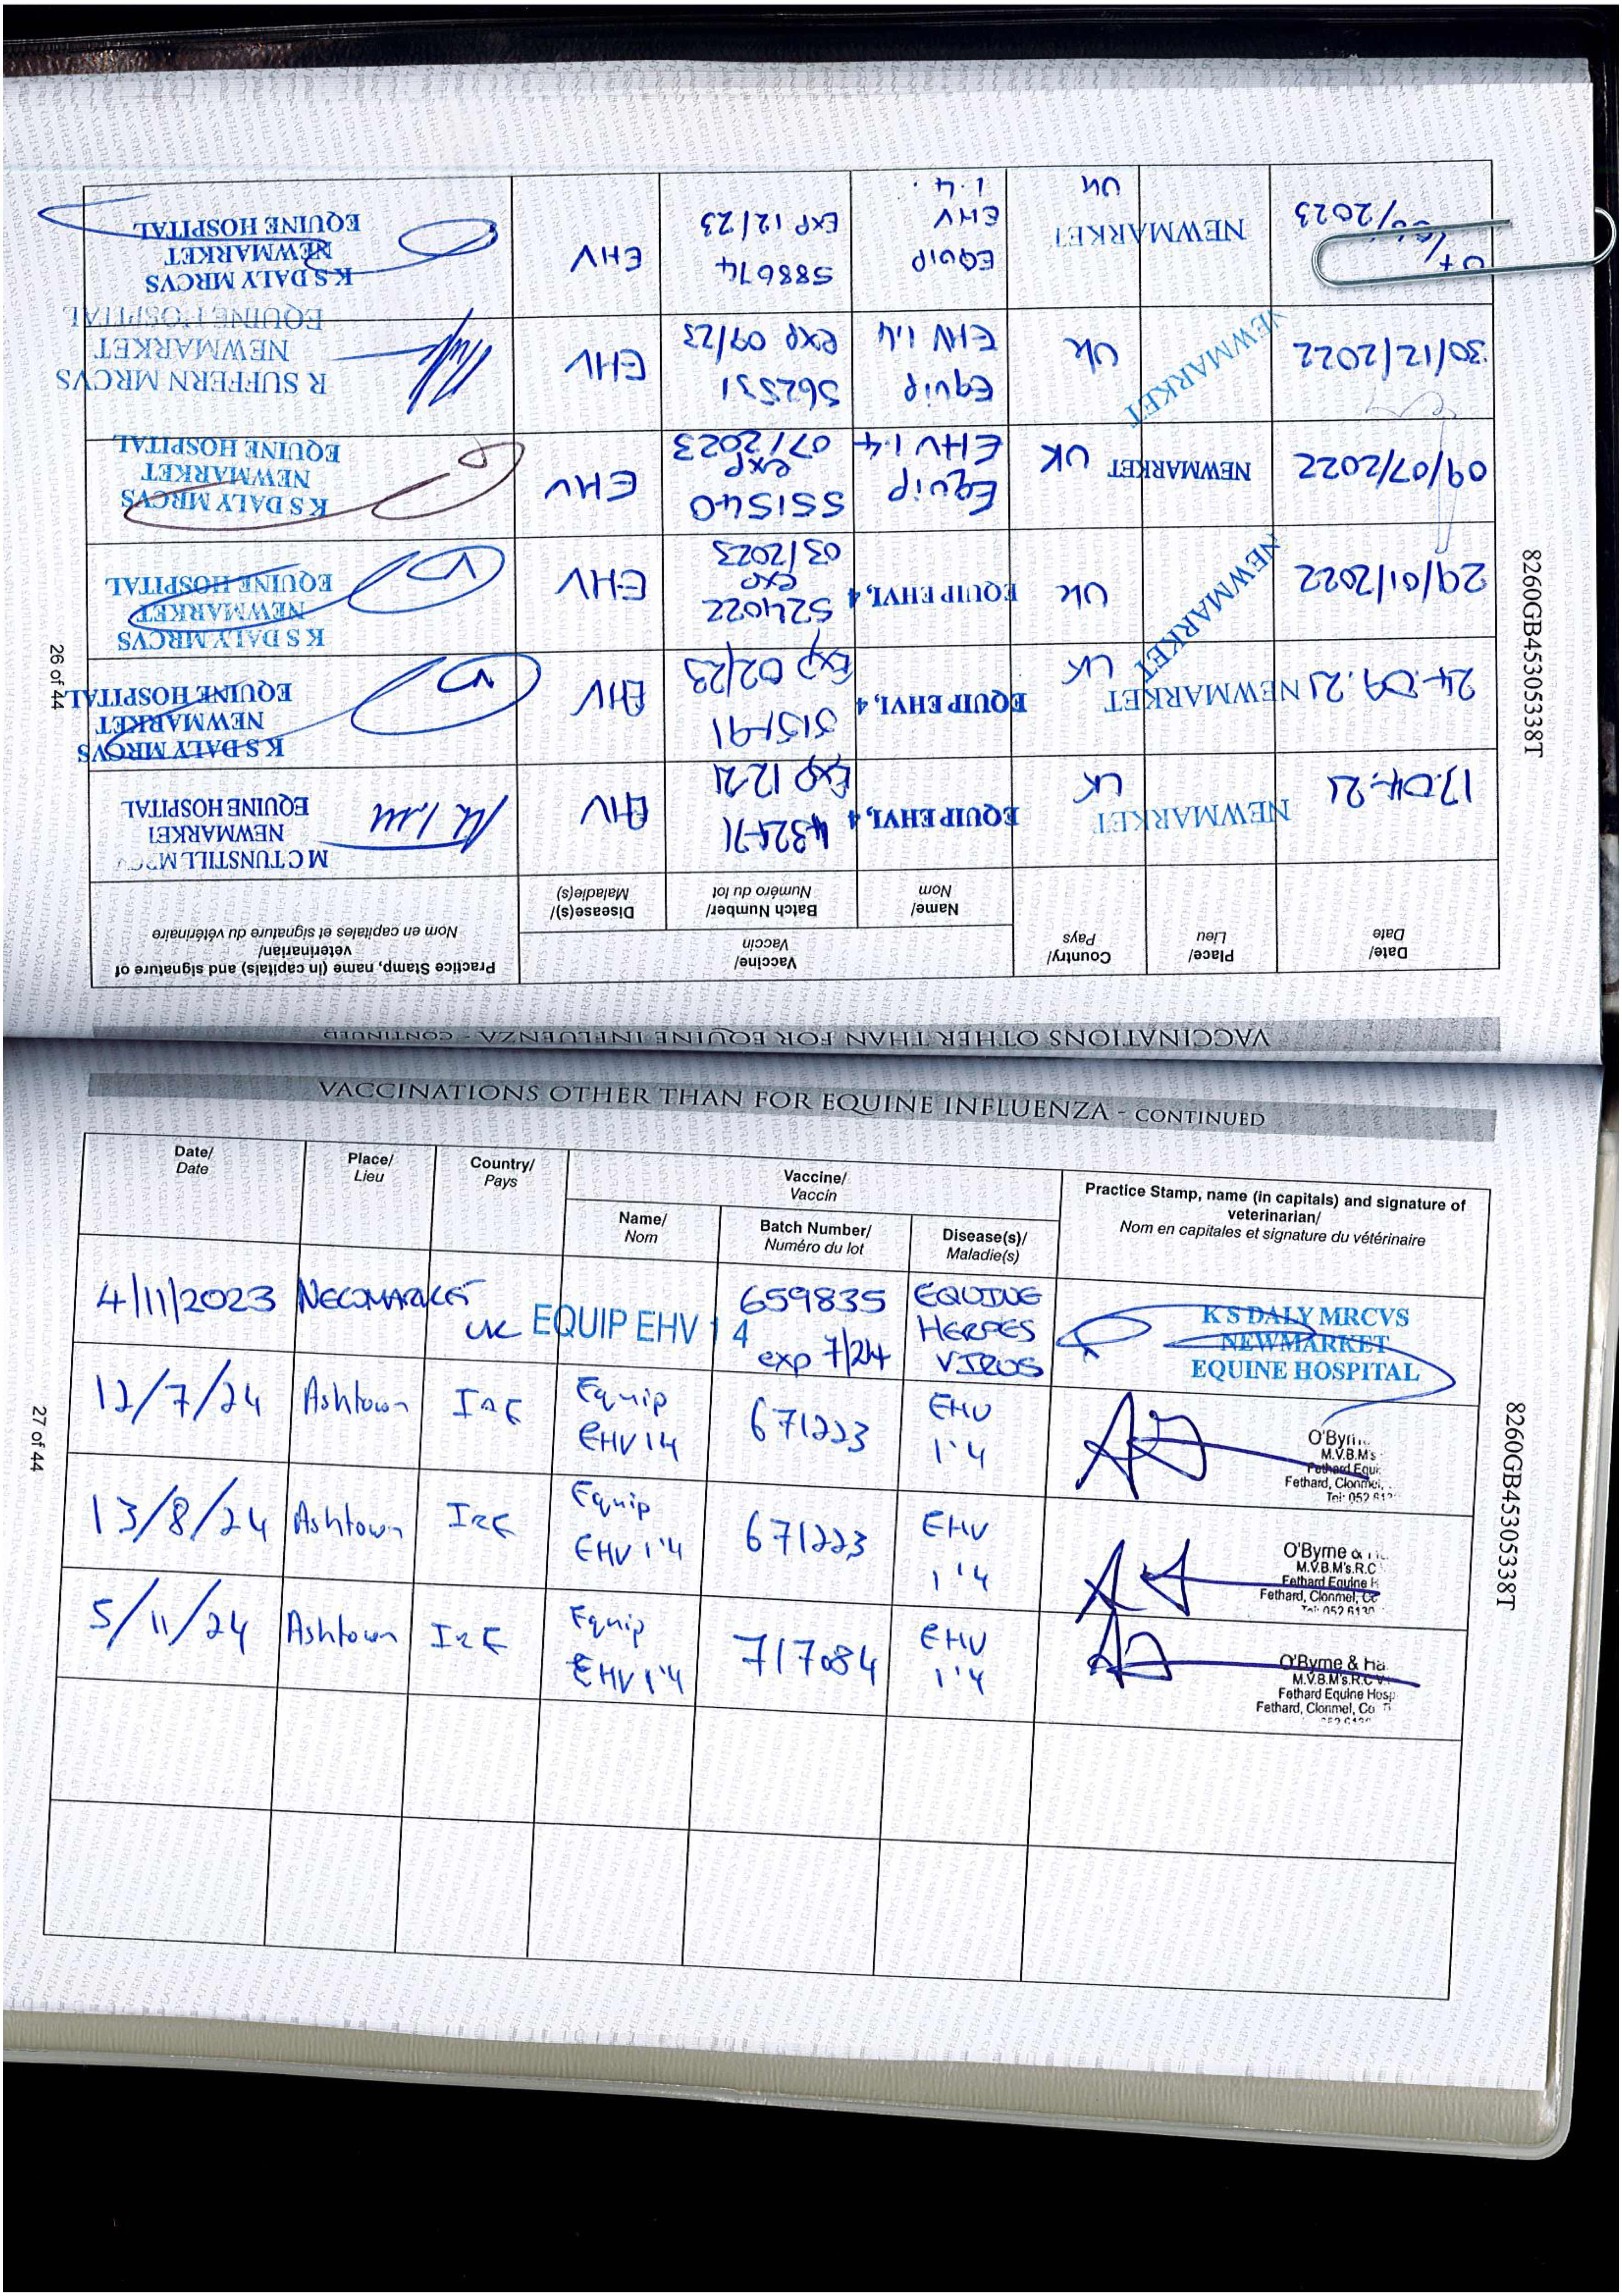 VACCINATIONS OTHER THAN FOR EQUINE INFLUENZA - CONTINUED
Date/ Date
Place/ Lieu
Country/ Pays
Vaccine/ Vaccin
Name/ Nom
Batch Number/ Numéro du lot
Disease(s)/ Maladie(s)
Practice Stamp, name (in capitals) and signature of veterinarian/
Nom en capitales et signature du vétérinaire
NEWMARKET UK EQUIP EHV1,4 EHV
Exp 12.21
M C TUNSTILL
NEWMARKET
EQUINE HOSPITAL
24.09.21 NEWMARKET UK EQUIP EHV1,4 EHV
Exp 02/23
K S DALY MRCVS
NEWMARKET
EQUINE HOSPITAL
29/01/2022 NEWMARKET UK EQUIP EHV1,4 524022 EHV
exp
03/2023
K S DALY MRCVS
NEWMARKET
EQUINE HOSPITAL
09/07/2022 NEWMARKET UK Equip 551540 EHV
EHV 1.4 exp
07/2023
K S DALY MRCVS
NEWMARKET
EQUINE HOSPITAL
30/12/2022 NEWMARKET UK Equip 562531 EHV
EHV 1.4 exp 09/23
R SUFFERN MRCVS
NEWMARKET
EQUINE HOSPITAL
/2023 NEWMARKET UK EQUIP 588674 EHV
EHV EXP 12/23
1.4.
K S DALY MRCVS
NEWMARKET
EQUINE HOSPITAL
26 of 44
8260GB45305338T
VACCINATIONS OTHER THAN FOR EQUINE INFLUENZA - CONTINUED
Date/ Date
Place/ Lieu
Country/ Pays
Vaccine/ Vaccin
Name/ Nom
Batch Number/ Numéro du lot
Disease(s)/ Maladie(s)
Practice Stamp, name (in capitals) and signature of veterinarian/
Nom en capitales et signature du vétérinaire
4/11/2023 NEWMARKET UK EQUIP EHV 1 4 659835 EQUINE
exp 7/24 HERPES
VIRUS
K S DALY MRCVS
NEWMARKET
EQUINE HOSPITAL
12/7/24 Ashtown IRE Equip 671223 EHV
EHV 1'4 1'4
M.V.B.M's
Fethard
Fethard, Clonmel,
13/8/24 Ashtown IRE Equip 671223 EHV
EHV 1'4 1'4
O'Byrne &
M.V.B.M's.R.C
Fethard Equine
Fethard, Clonmel,
5/11/24 Ashtown IRE Equip 717084 EHV
EHV 1'4 1'4
O'Byrne &
M.V.B.M's.R.C
Fethard Equine Hosp
Fethard, Clonmel, Co
27 of 44
8260GB45305338T